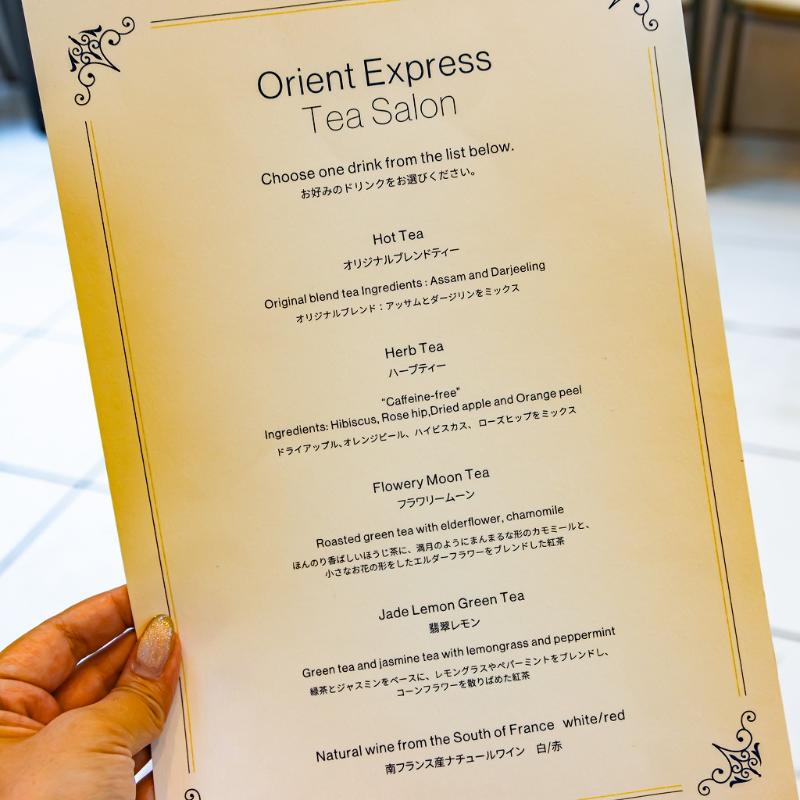 Orient Express
Tea Salon
Choose one drink from the list below.
お好みのドリンクをお選びください。
Hot Tea
オリジナルブレンドティー
Original blend tea Ingredients : Assam and Darjeeling
オリジナルブレンド：アッサムとダージリンをミックス
Herb Tea
ハーブティー
“Caffeine-free”
Ingredients: Hibiscus, Rose hip,Dried apple and Orange peel
ドライアップル、オレンジピール、ハイビスカス、ローズヒップをミックス
Flowery Moon Tea
フラワリームーン
Roasted green tea with elderflower, chamomile
ほんのり香ばしいほうじ茶に、満月のようにまんまるな形のカモミールと、
小さなお花の形をしたエルダーフラワーをブレンドした紅茶
Jade Lemon Green Tea
翡翠レモン
Green tea and jasmine tea with lemongrass and peppermint
緑茶とジャスミンをベースに、レモングラスやペパーミントをブレンドし、
コーンフラワーを散りばめた紅茶
Natural wine from the South of France white/red
南フランス産ナチュールワイン 白/赤